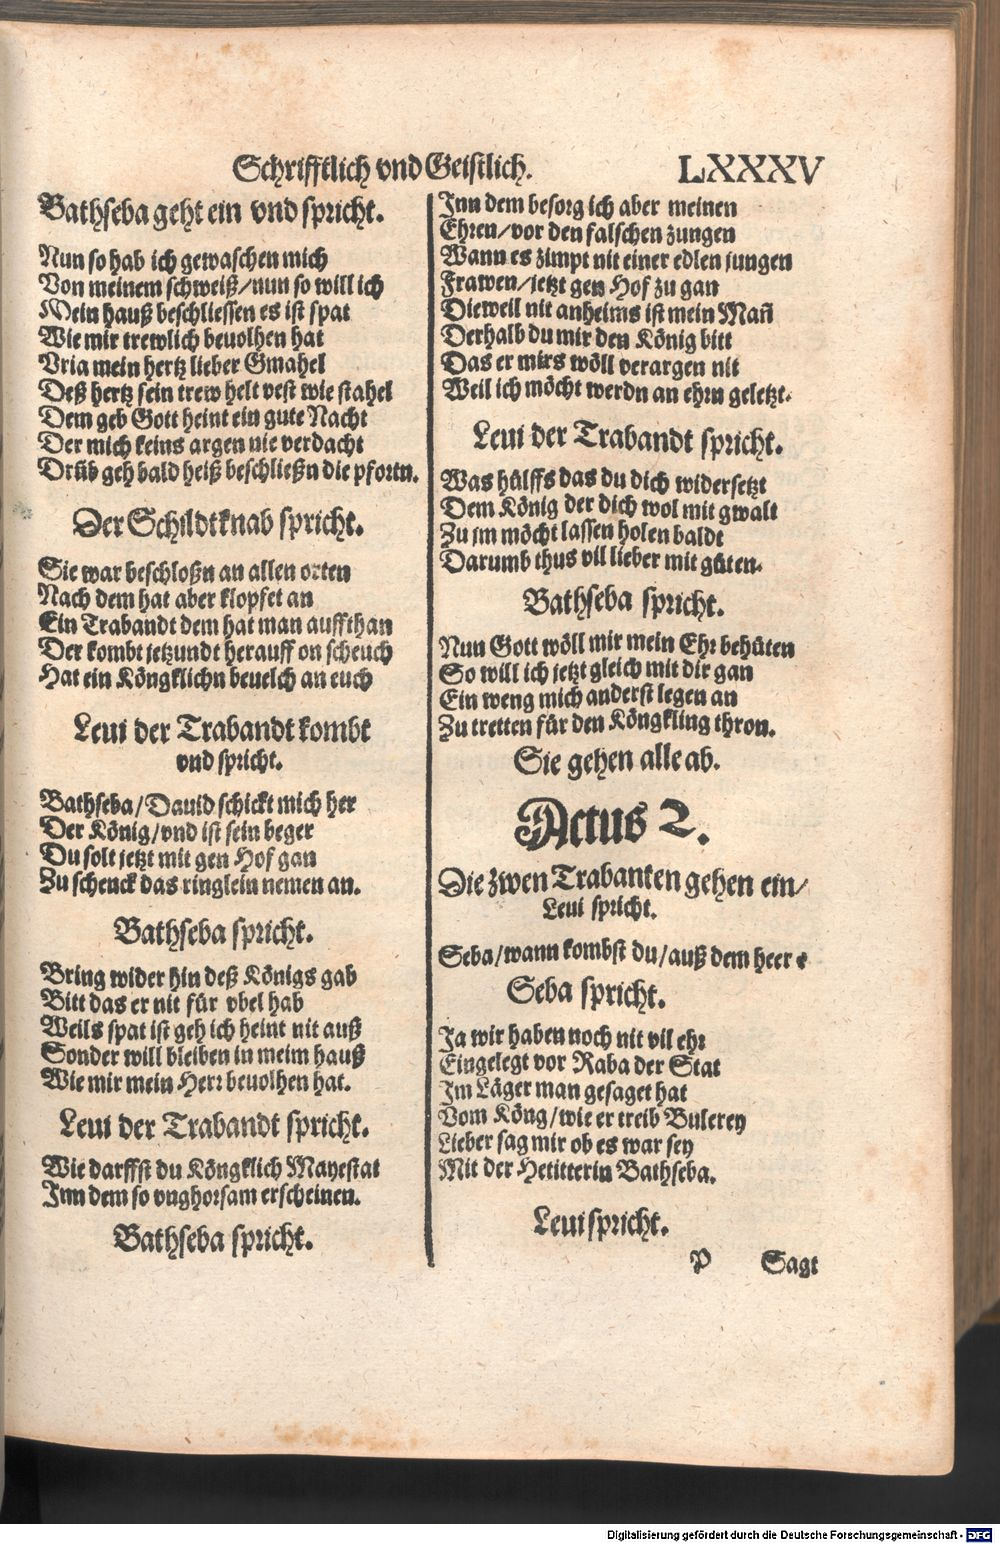 Schrifftlich vnd Geistlich. LXXXV
Bathseba geht ein vnd spricht.
Nun so hab ich gewaschen mich
Von meinem schweiß/nun so will ich
Mein hauß beschliessen es ist spat
Wie mir trewlich beuolhen hat
Vria mein hertz lieber Gmahel
Deß hertz sein trew helt vest wie stahel
Dem geb Gott heint ein gute Nacht
Der mich keins argen nie verdacht
Drüb geh bald heiß beschließn die pfortn.
Der Schildtknab spricht.
Sie war beschloßn an allen orten
Nach dem hat aber klopfet an
Ein Trabandt dem hat man auffthan
Der kombt jetzundt herauff on scheuch
Hat ein Köngklichn beuelch an euch
Leui der Trabandt kombt
vnd spricht.
Bathseba/Dauid schickt mich her
Der König/vnd ist sein beger
Du solt jetzt mit gen Hof gan
Zu schenck das ringlein nemen an.
Bathseba spricht.
Bring wider hin deß Königs gab
Bitt das er nit für vbel hab
Weils spat ist geh ich heint nit auß
Sonder will bleiben in meim hauß
Wie mir mein Herr beuolhen hat.
Leui der Trabandt spricht.
Wie darffst du Köngklich Mayestat
Inn dem so vnghorsam erscheinen.
Bathseba spricht.
Inn dem besorg ich aber meinen
Ehren/vor den falschen zungen
Wann es zimpt nit einer edlen jungen
Frawen/jetzt gen Hof zu gan
Dieweil nit anheims ist mein Mañ
Derhalb du mir den König bitt
Das er mirs wöll verargen nit
Weil ich möcht werdn an ehrn geletzt.
Leui der Trabandt spricht.
Was hülffs das du dich widersetzt
Dem König der dich wol mit gwalt
Zu jm möcht lassen holen baldt
Darumb thus vil lieber mit güten.
Bathseba spricht.
Nun Gott wöll mir mein Ehr behüten
So will ich jetzt gleich mit dir gan
Ein weng mich anderst legen an
Zu tretten für den Köngkling thron.
Sie gehen alle ab.
Actus 2.
Die zwen Trabanten gehen ein/
Leui spricht.
Seba/wann kombst du/auß dem heer?
Seba spricht.
Ja wir haben noch nit vil ehr
Eingelegt vor Raba der Stat
Im Läger man gesaget hat
Vom Köng/wie er treib Bulerey
Lieber sag mir ob es war sey
Mit der Hetitterin Bathseba.
Leui spricht.
P Sagt
Digitalisierung gefördert durch die Deutsche Forschungsgemeinschaft - DFG